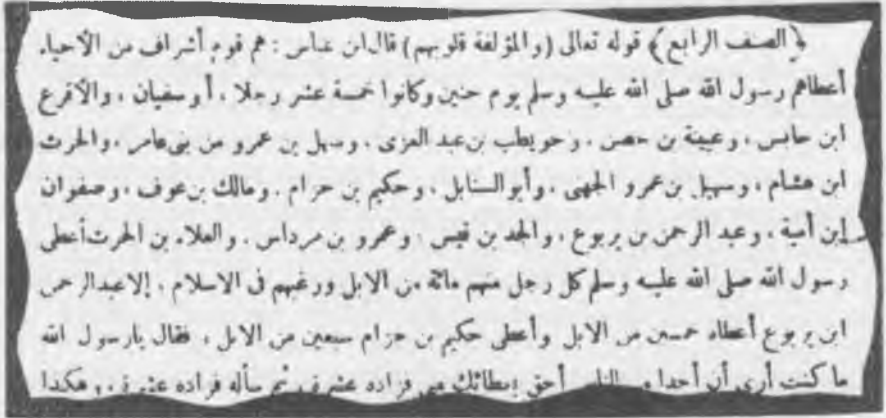 ﴿الصنف الرابع﴾ قوله تعالى (والمؤلفة قلوبهم) قال ابن عباس : هم قوم أشراف من الأحياء
أعطاهم رسول الله صلى الله عليه وسلم يوم حنين وكانوا خمسة عشر رجلا ، أبو سفيان ، والأقرع
ابن حابس ، وعيينة بن حصن ، وحويطب بن عبد العزى ، وسهل بن عمرو من بنى عامر ، والحرث
ابن هشام ، وسهيل بن عمرو الجهنى ، وأبو السنابل ، وحكيم بن حزام ، ومالك بن عوف ، وصفوان
ابن أمية ، وعبد الرحمن بن يربوع ، والجد بن قيس ، وعمرو بن مرداس ، والعلاء بن الحرث أعطى
رسول الله صلى الله عليه وسلم كل رجل منهم مائة من الابل ورغبهم فى الاسلام ، إلا عبد الرحمن
ابن يربوع أعطاه خمسين من الابل وأعطى حكيم بن حزام سبعين من الابل ، فقال يارسول الله
ما كنت أرى أن أحدا من الناس أحق بعطائك منى فزاده عشرة ، ثم سأله فزاده عشرة ، وهكذا